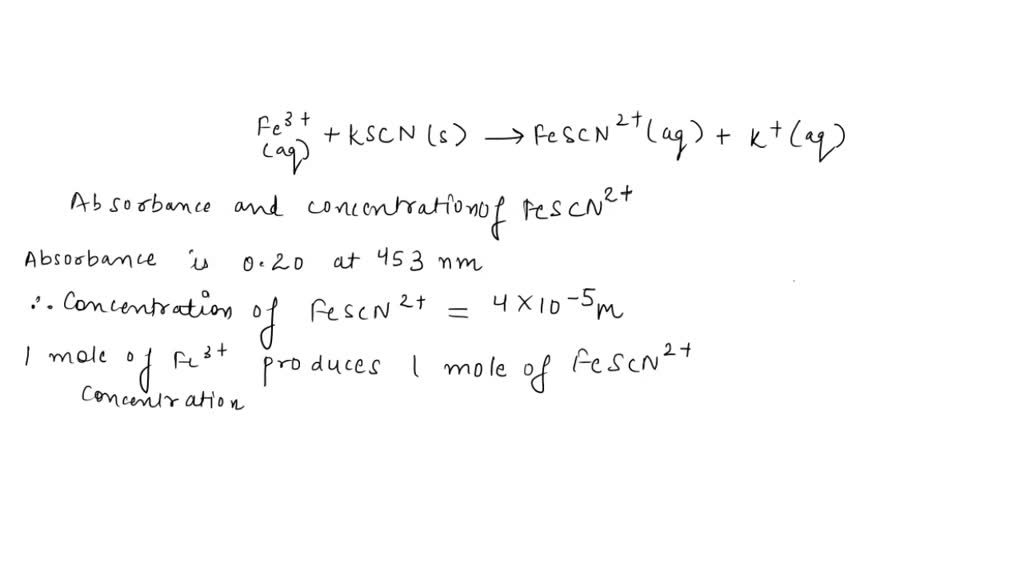 Fe³⁺(aq) + KSCN (s) → FeSCN²⁺(aq) + K⁺(aq)
Absorbance and concentration of FeSCN²⁺
Absorbance is 0.20 at 453 nm
∴ Concentration of FeSCN²⁺ = 4×10⁻⁵m
1 mole of Fe³⁺ produces 1 mole of FeSCN²⁺
Concentration